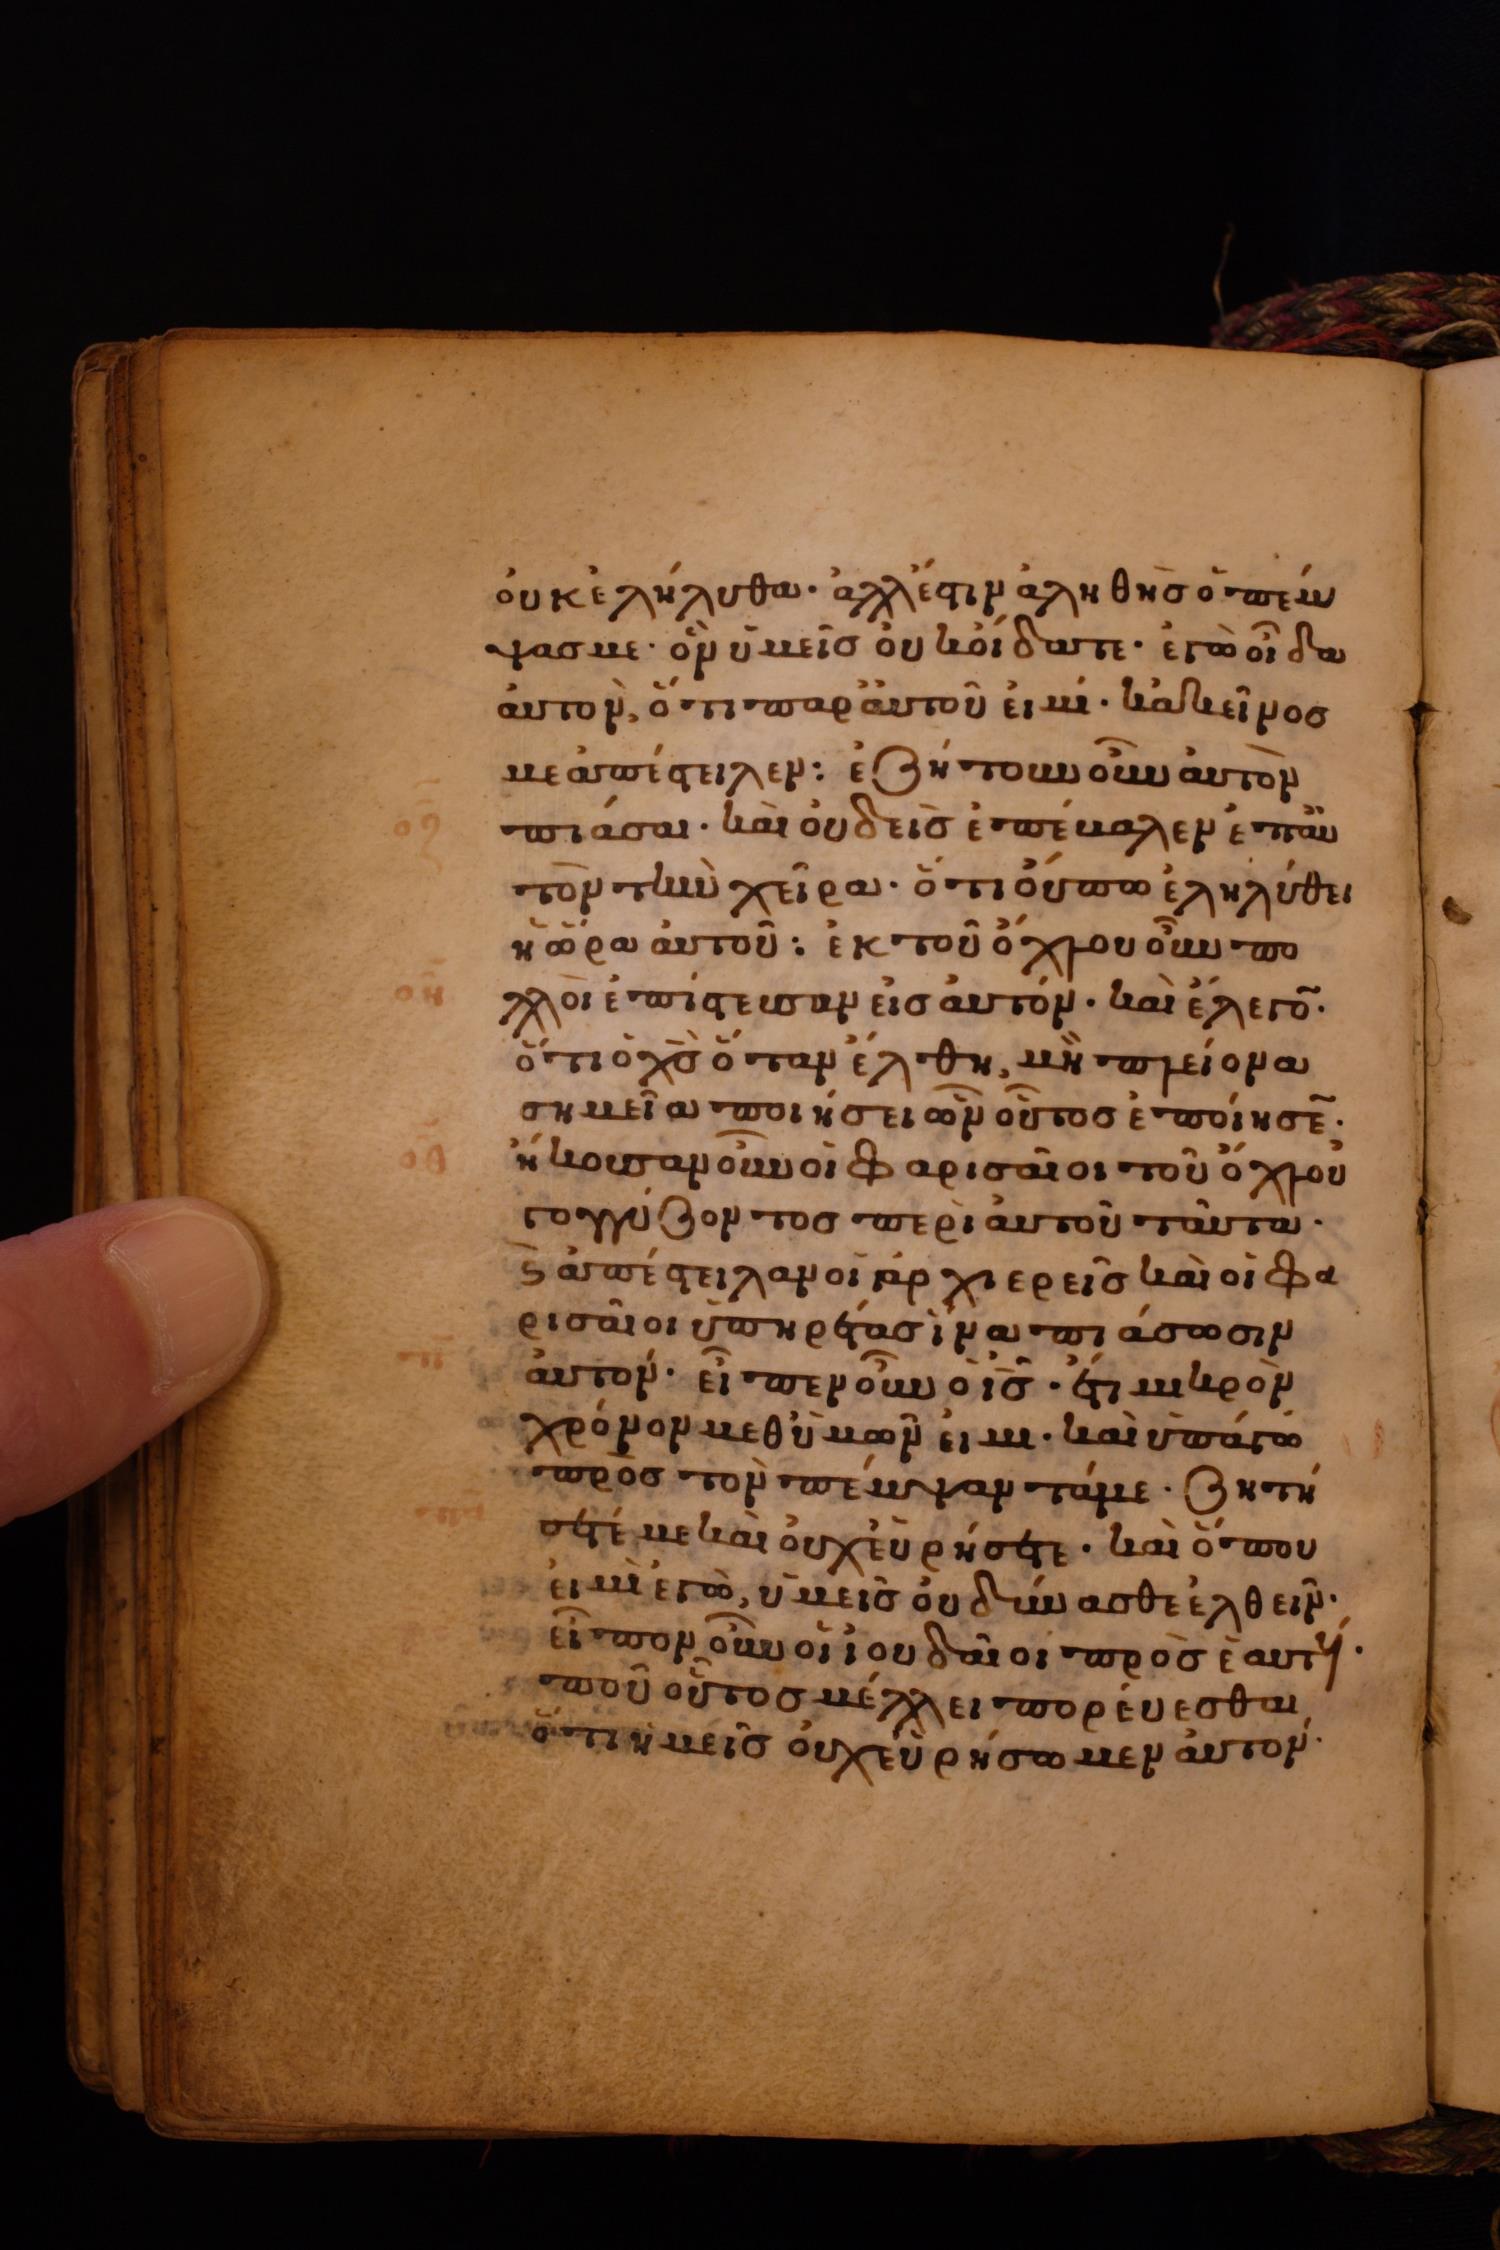 ὀυκ ἐλήλυθα· ἀλλ' ἔστιν ἀληθὴσ ὁ πέμ
ψασ με· ὃν ὑμεῖσ ὀυκ ὀίδατε· ἐγὼ οἶδα
ἀυτον, ὅτι παρ ἀυτοῦ ἐιμί· κἀκεῖνοσ
με ἀπέστειλεν: ἐζήτουν οὖν ἀυτὸν
πιάσαι· καὶ ὀυδεὶσ ἐπέβαλεν ἐπ ἀυ
τὸν τὴν χεῖρα· ὅτι ὄυπω ἐληλύθει
ἡ ὥρα ἀυτοῦ: ἐκ τοῦ ὄχλου οὖν πο
λλοὶ ἐπίστευσαν ἐισ ἀυτόν· καὶ ἔλεγο̃·
ὅτι ὁ χ̅σ̅ ὅταν ἔλθη, μὴ πλείονα
σημεῖα ποιήσει ὧν οὗτοσ ἐποίησε̃·
ἤκουσαν οὖν οἱ φαρισαῖοι τοῦ ὄχλου
γογγύζοντοσ περὶ ἀυτοῦ ταῦτα·
ϛ ἀπέστειλαν οἱ ἀρχιερεῖσ καὶ οἱ φα
ρισαῖοι ὑπηρέτασ ἵνα πιάσωσιν
ἀυτον· εἶπεν οὖν ὁ ἰ̅σ̅· ἔτι μικρὸν
χρόνον μεθ ὑμῶν ἐιμι· καὶ ὑπάγω
πρὸσ τὸν πέμψαντά με· ζητή
σετέ με καὶ ὀυχ ἑυρήσετε· καὶ ὅπου
ἐιμὶ ἐγὼ, ὑμεῖσ ὀυ δύνασθε ἐλθεῖν·
εἶπον οὖν οἱ ἰουδαῖοι πρὸσ ἑαυτούσ·
ποῦ οὗτοσ μέλλει πορέυεσθαι,
ὅτι ἡμεῖσ ὀυχ ἑυρήσωμεν ἀυτον·
οζ
οη
οθ
π